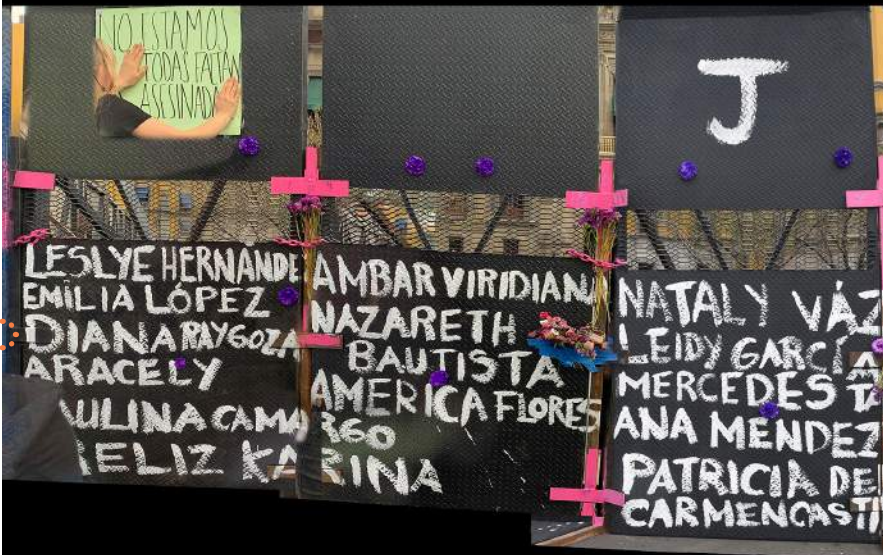 NO ESTAMOS
TODAS FALTAN
ASESINADAS
J
LESLYE HERNÁNDE
EMILIA LÓPEZ
DIANA RAYGOZA
ARACELY
AULINA CAMARGO
ELIZ KARINA
AMBAR VIRIDIANA
NAZARETH
BAUTISTA
AMERICA FLORES
NATALY VÁZ
LEIDY GARCÍA
MERCEDES TA
ANA MENDEZ
PATRICIA DE
CARMEN CASTI